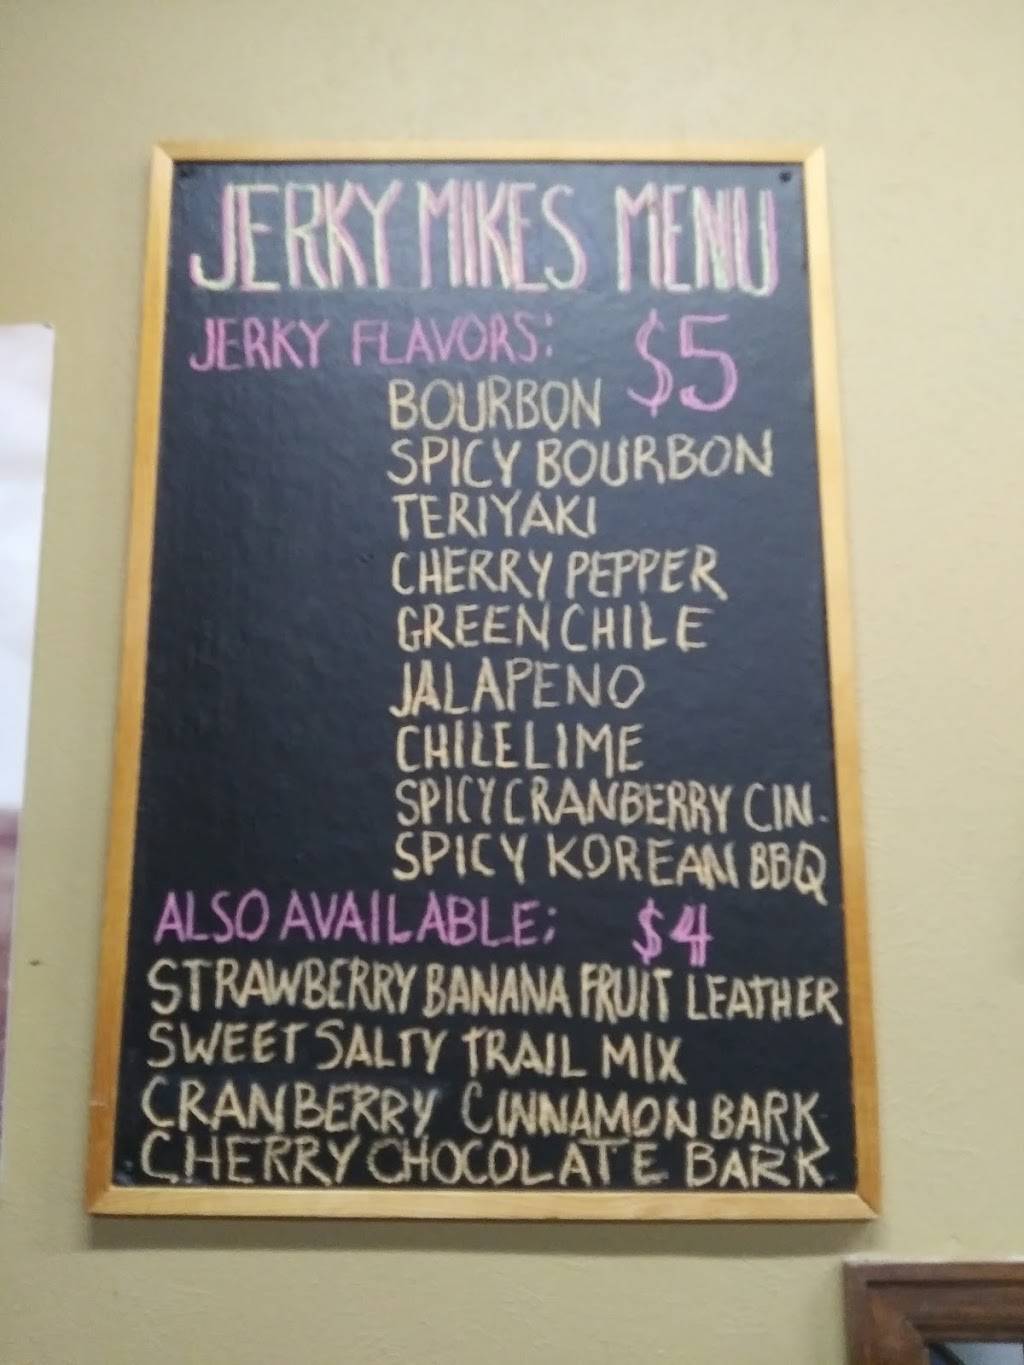 JERKY MIKES MENU
JERKY FLAVORS: $5
BOURBON
SPICY BOURBON
TERIYAKI
CHERRY PEPPER
GREEN CHILE
JALAPENO
CHILE LIME
SPICY CRANBERRY CIN.
SPICY KOREAN BBQ
ALSO AVAILABLE: $4
STRAWBERRY BANANA FRUIT LEATHER
SWEET SALTY TRAIL MIX
CRANBERRY CINNAMON BARK
CHERRY CHOCOLATE BARK